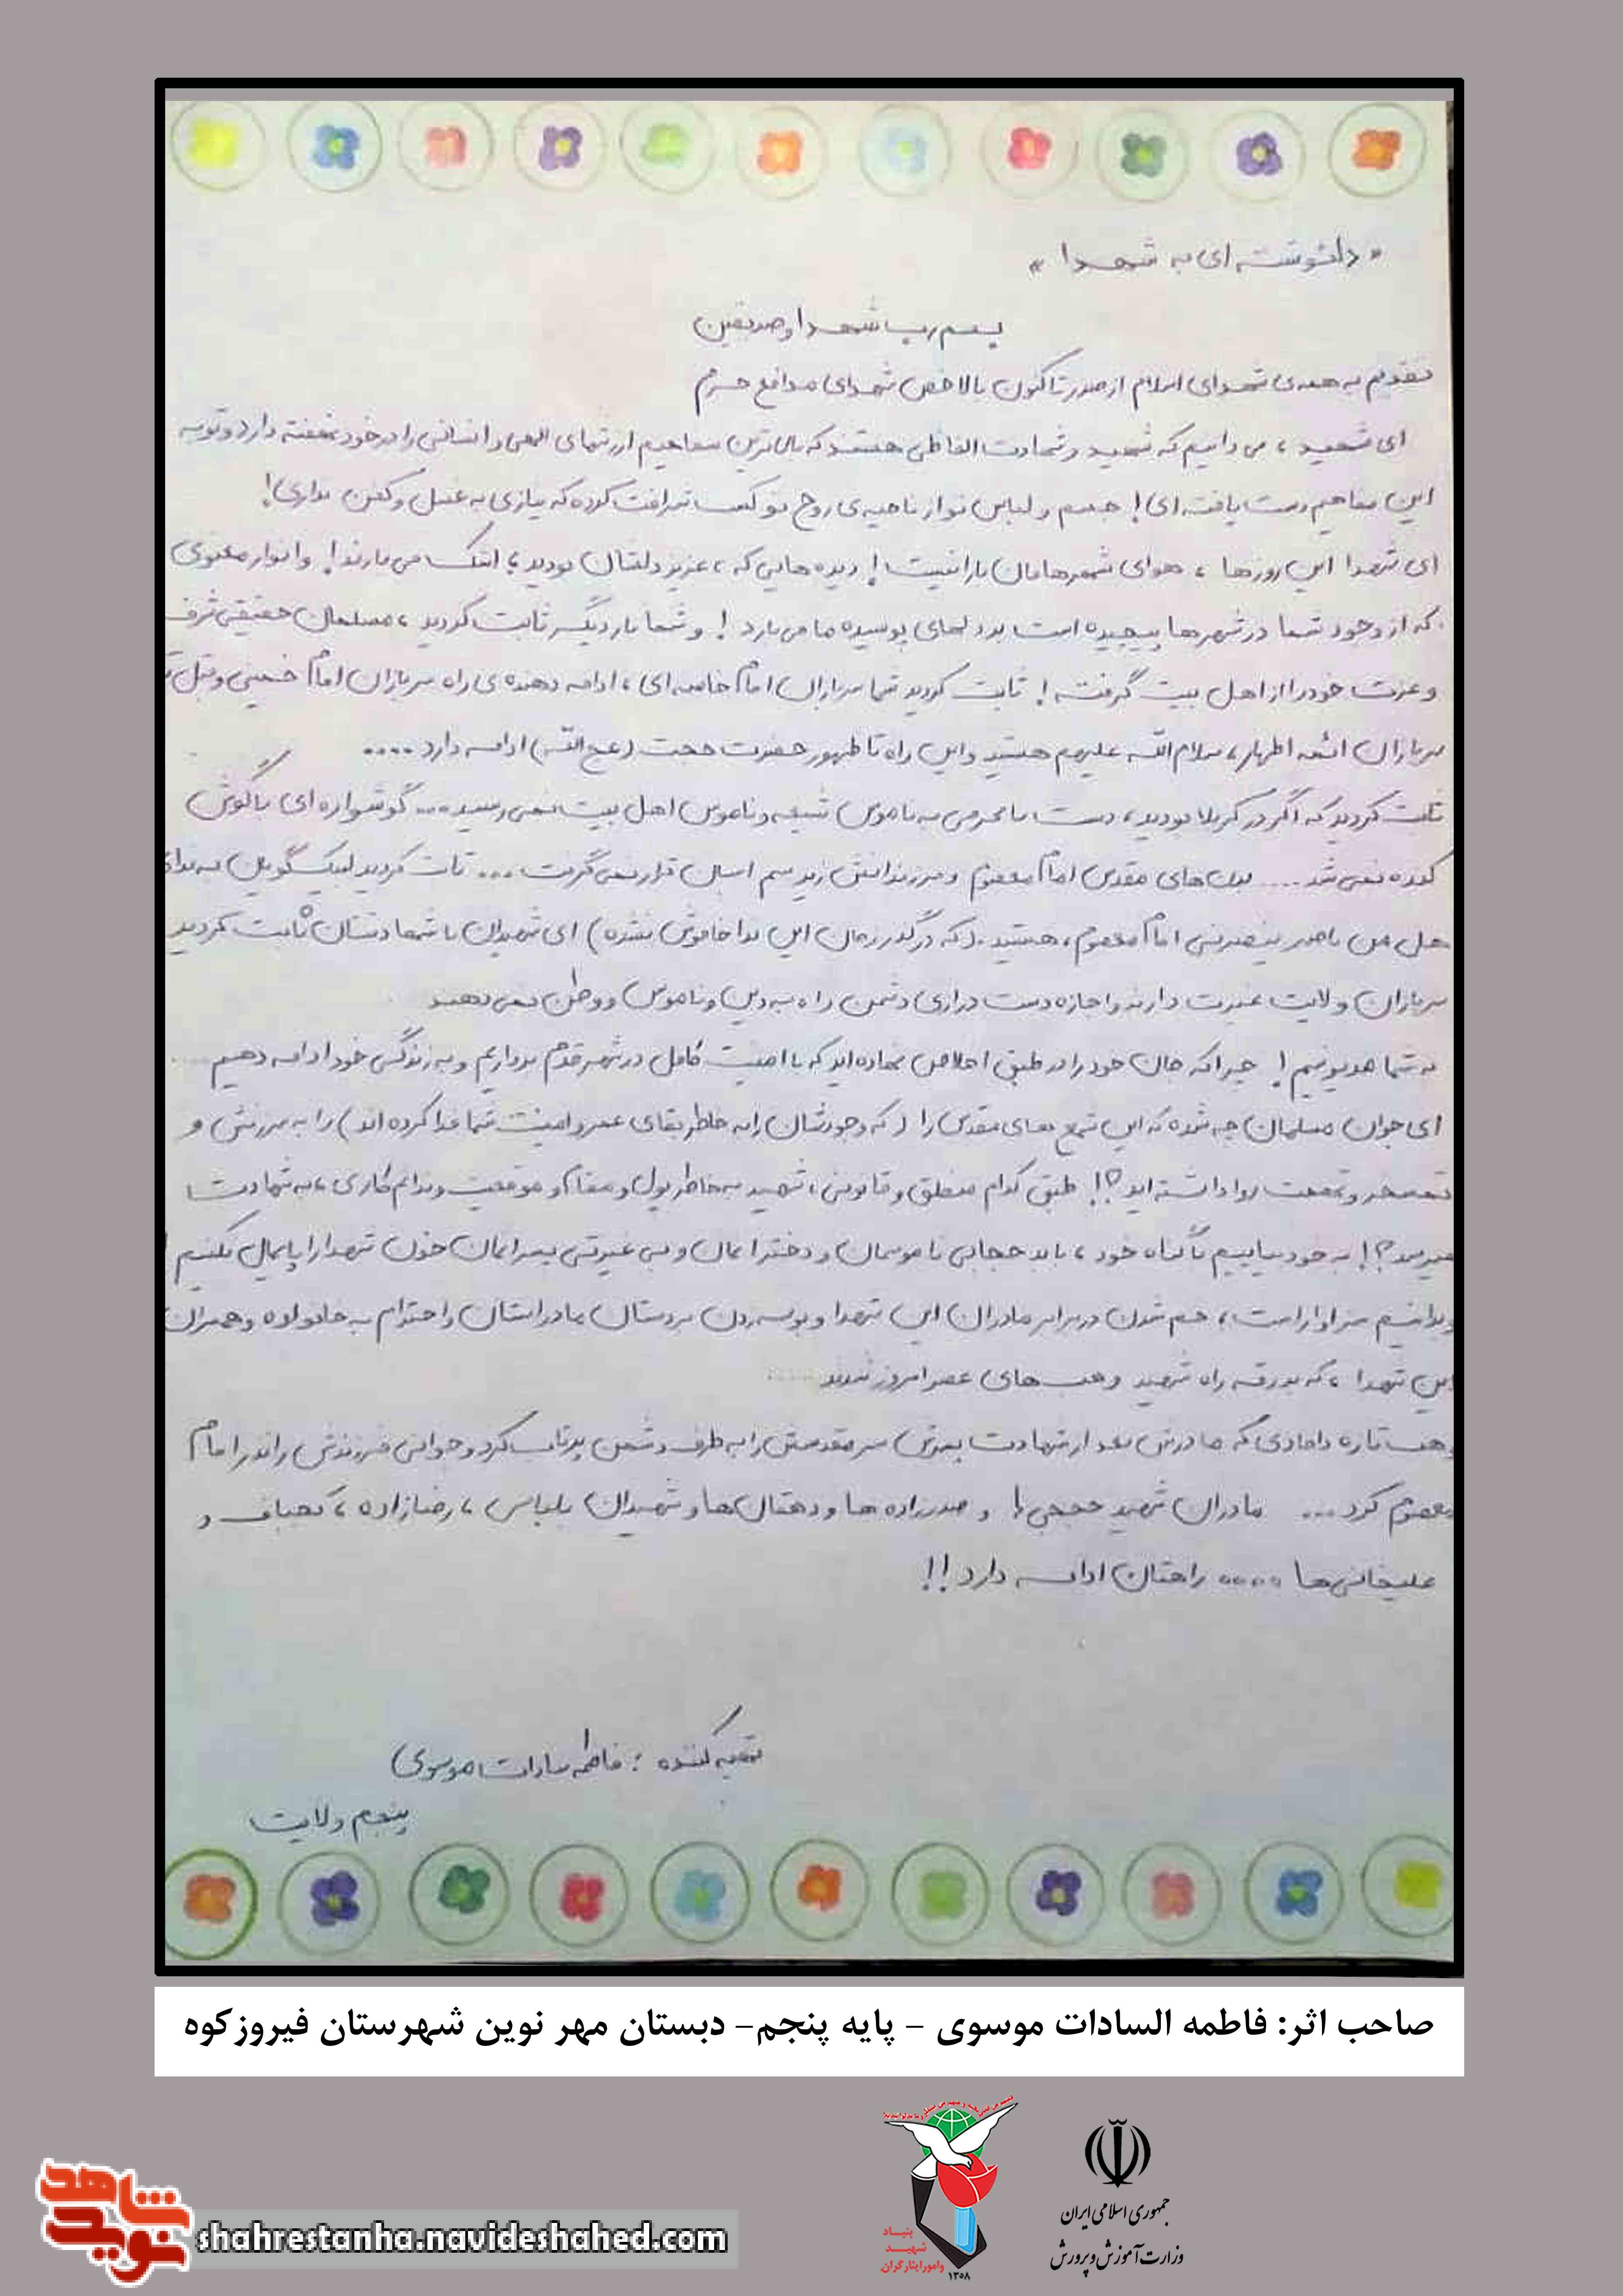 « دلنوشته ای به شهدا »
بسم رب شهدا و صدیقین
تقدیم به همه ی شهدای اسلام از صدر تا کنون بالاخص شهدای مدافع حرم
ای شهید ، می دانیم که شهید و شهادت الفاظی هستند که بالاترین مفاهیم ارزشهای الهی و انسانی را در خود نهفته دارد و تو به
این مفاهیم دست یافته ای! جسم و لباس تو از ناحیه ی روح تو کسب شرافت کرده که نیازی به غسل و کفن نداری!
ای شهدا این روزها ، هوای شهرهامان بارانیست! دیده هایی که ، عزیز دلشان بودید ؛ اشک می بارند! و انوار معنوی
که از وجود شما در شهرها پیچیده است بر دلهای پوسیده ما می بارد ! و شما بار دیگر ثابت کردید ، مسلمان حقیقی شرف
و عزت خود را از اهل بیت گرفته ! ثابت کردید شما سربازان امام خامنه ای ، ادامه دهنده ی راه سربازان امام خمینی و قبل
سربازان ائمه اطهار، سلام الله علیهم هستید و این راه تا ظهور حضرت حجت (عج الله) ادامه دارد ....
ثابت کردید که اگر در کربلا بودید ، دست نامحرمی به ناموس شیعه و ناموس اهل بیت نمی رسید ... گوشواره ای با گوش
کنده نمی شد .... بدن های مقدس امام معصوم و فرزندانش زیر سم اسبان قرار نمی گرفت ... ثابت کردید لبیک گویان به ندای
هل من ناصر ینصرنی امام معصوم ، هستید . (که در گذر زمان این ندا خاموش نشده) ای شهیدان با شهادتتان ثابت کردید
سربازان ولایت غیرت دارند و اجازه دست درازی دشمن را به دین و ناموس و وطن نمی دهند
به شما مدیونیم ! چرا که جان خود را در طبق اخلاص نهاده اید که با امنیت کامل در شهر قدم برداریم و به زندگی خود ادامه دهیم
ای جوان مسلمان چه شده که این شمع های مقدس را (که وجودشان را به خاطر بقای عمر و امنیت شما فدا کرده اند) را به سرزنش و
تمسخر و تهمت روا داشته اید ؟! طبق کدام منطق و قانونی ، شهید به خاطر پول و مقام و موقعیت و ندانم کاری ، به شهادت
میرسد ؟! به خود بیاییم تا گناه خود ، با بد حجابی ناموسمان و دخترانمان و بی غیرتی پسرانمان خون شهدا را پایمال نکنیم !
بدانیم سزاوار است ، خم شدن در برابر مادران این شهدا و بوسه زدن بر دستان مادرانشان و احترام به خانواده و همسران
این شهدا ، که بدرقه راه شهید وهب های عصر امروز شدند
وهب تازه دامادی که مادرش بعد از شهادت پسرش سر مقدسش را به طرف دشمن پرتاب کرد و جوانی فرزندش را نذر امام
معصوم کرد ... مادران شهید حججی ها و صدرزاده ها و دهقان ها و شهیدان بلباسی ، رضازاده ، کهباف و
علیخانی ها .... راهتان ادامه دارد !!
تهیه کننده : فاطمه سادات موسوی
پنجم ولایت
صاحب اثر: فاطمه السادات موسوی - پایه پنجم- دبستان مهر نوین شهرستان فیروزکوه
جمهوری اسلامی ایران
وزارت آموزش و پرورش
بنیاد
شهید
و امور ایثارگران
۱۳۵۸
نوید شاهد
shahrestanha.navideshahed.com